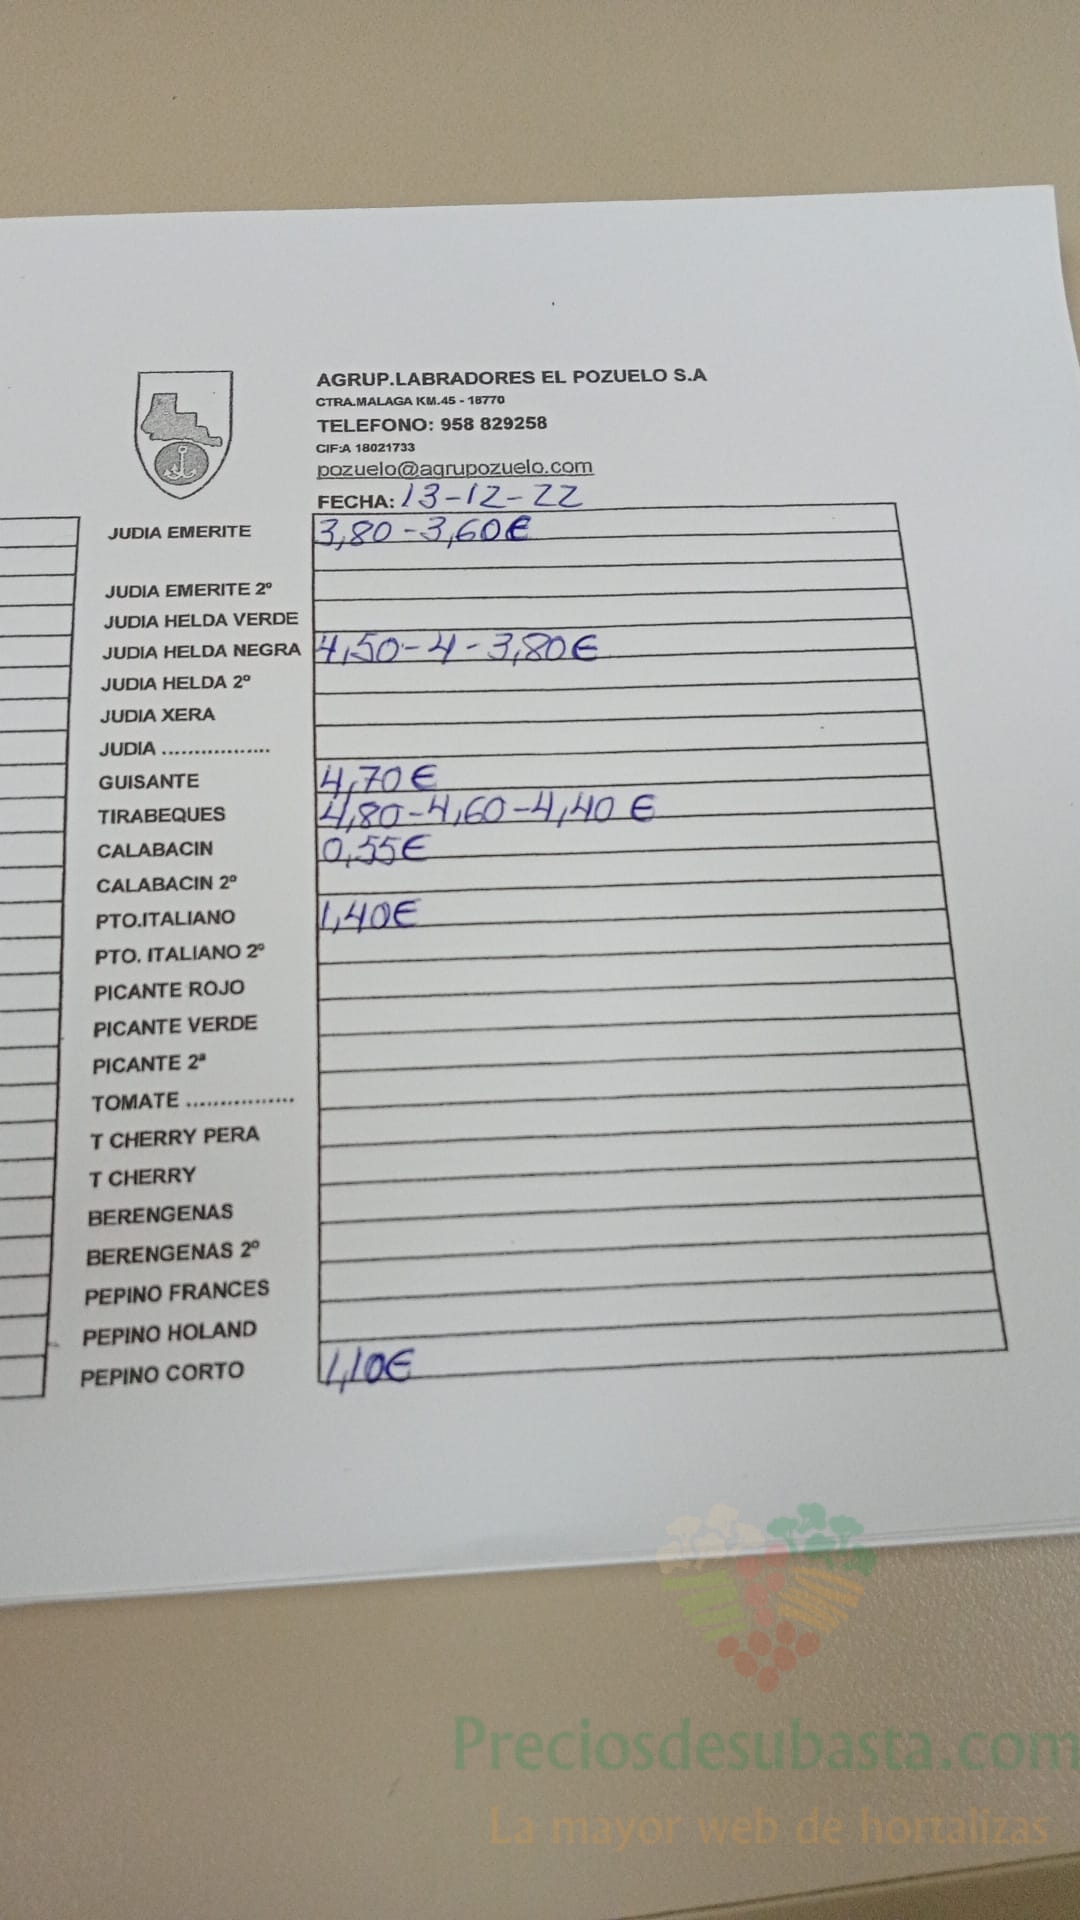 AGRUP.LABRADORES EL POZUELO S.A
CTRA.MALAGA KM.45 - 18770
TELEFONO: 958 829258
CIF:A 18021733
pozuelo@agrupozuelo.com
FECHA: 13-12-22
JUDIA EMERITE 3,80-3,60€
JUDIA EMERITE 2º
JUDIA HELDA VERDE
JUDIA HELDA NEGRA 4,50-4-3,80€
JUDIA HELDA 2º
JUDIA XERA
JUDIA .................
GUISANTE 4,70€
TIRABEQUES 4,80-4,60-4,40 €
CALABACIN 0,55€
CALABACIN 2º
PTO.ITALIANO 1,40€
PTO. ITALIANO 2º
PICANTE ROJO
PICANTE VERDE
PICANTE 2ª
TOMATE ................
T CHERRY PERA
T CHERRY
BERENGENAS
BERENGENAS 2º
PEPINO FRANCES
PEPINO HOLAND
PEPINO CORTO 1,10€
Preciosdesubasta.com
La mayor web de hortalizas